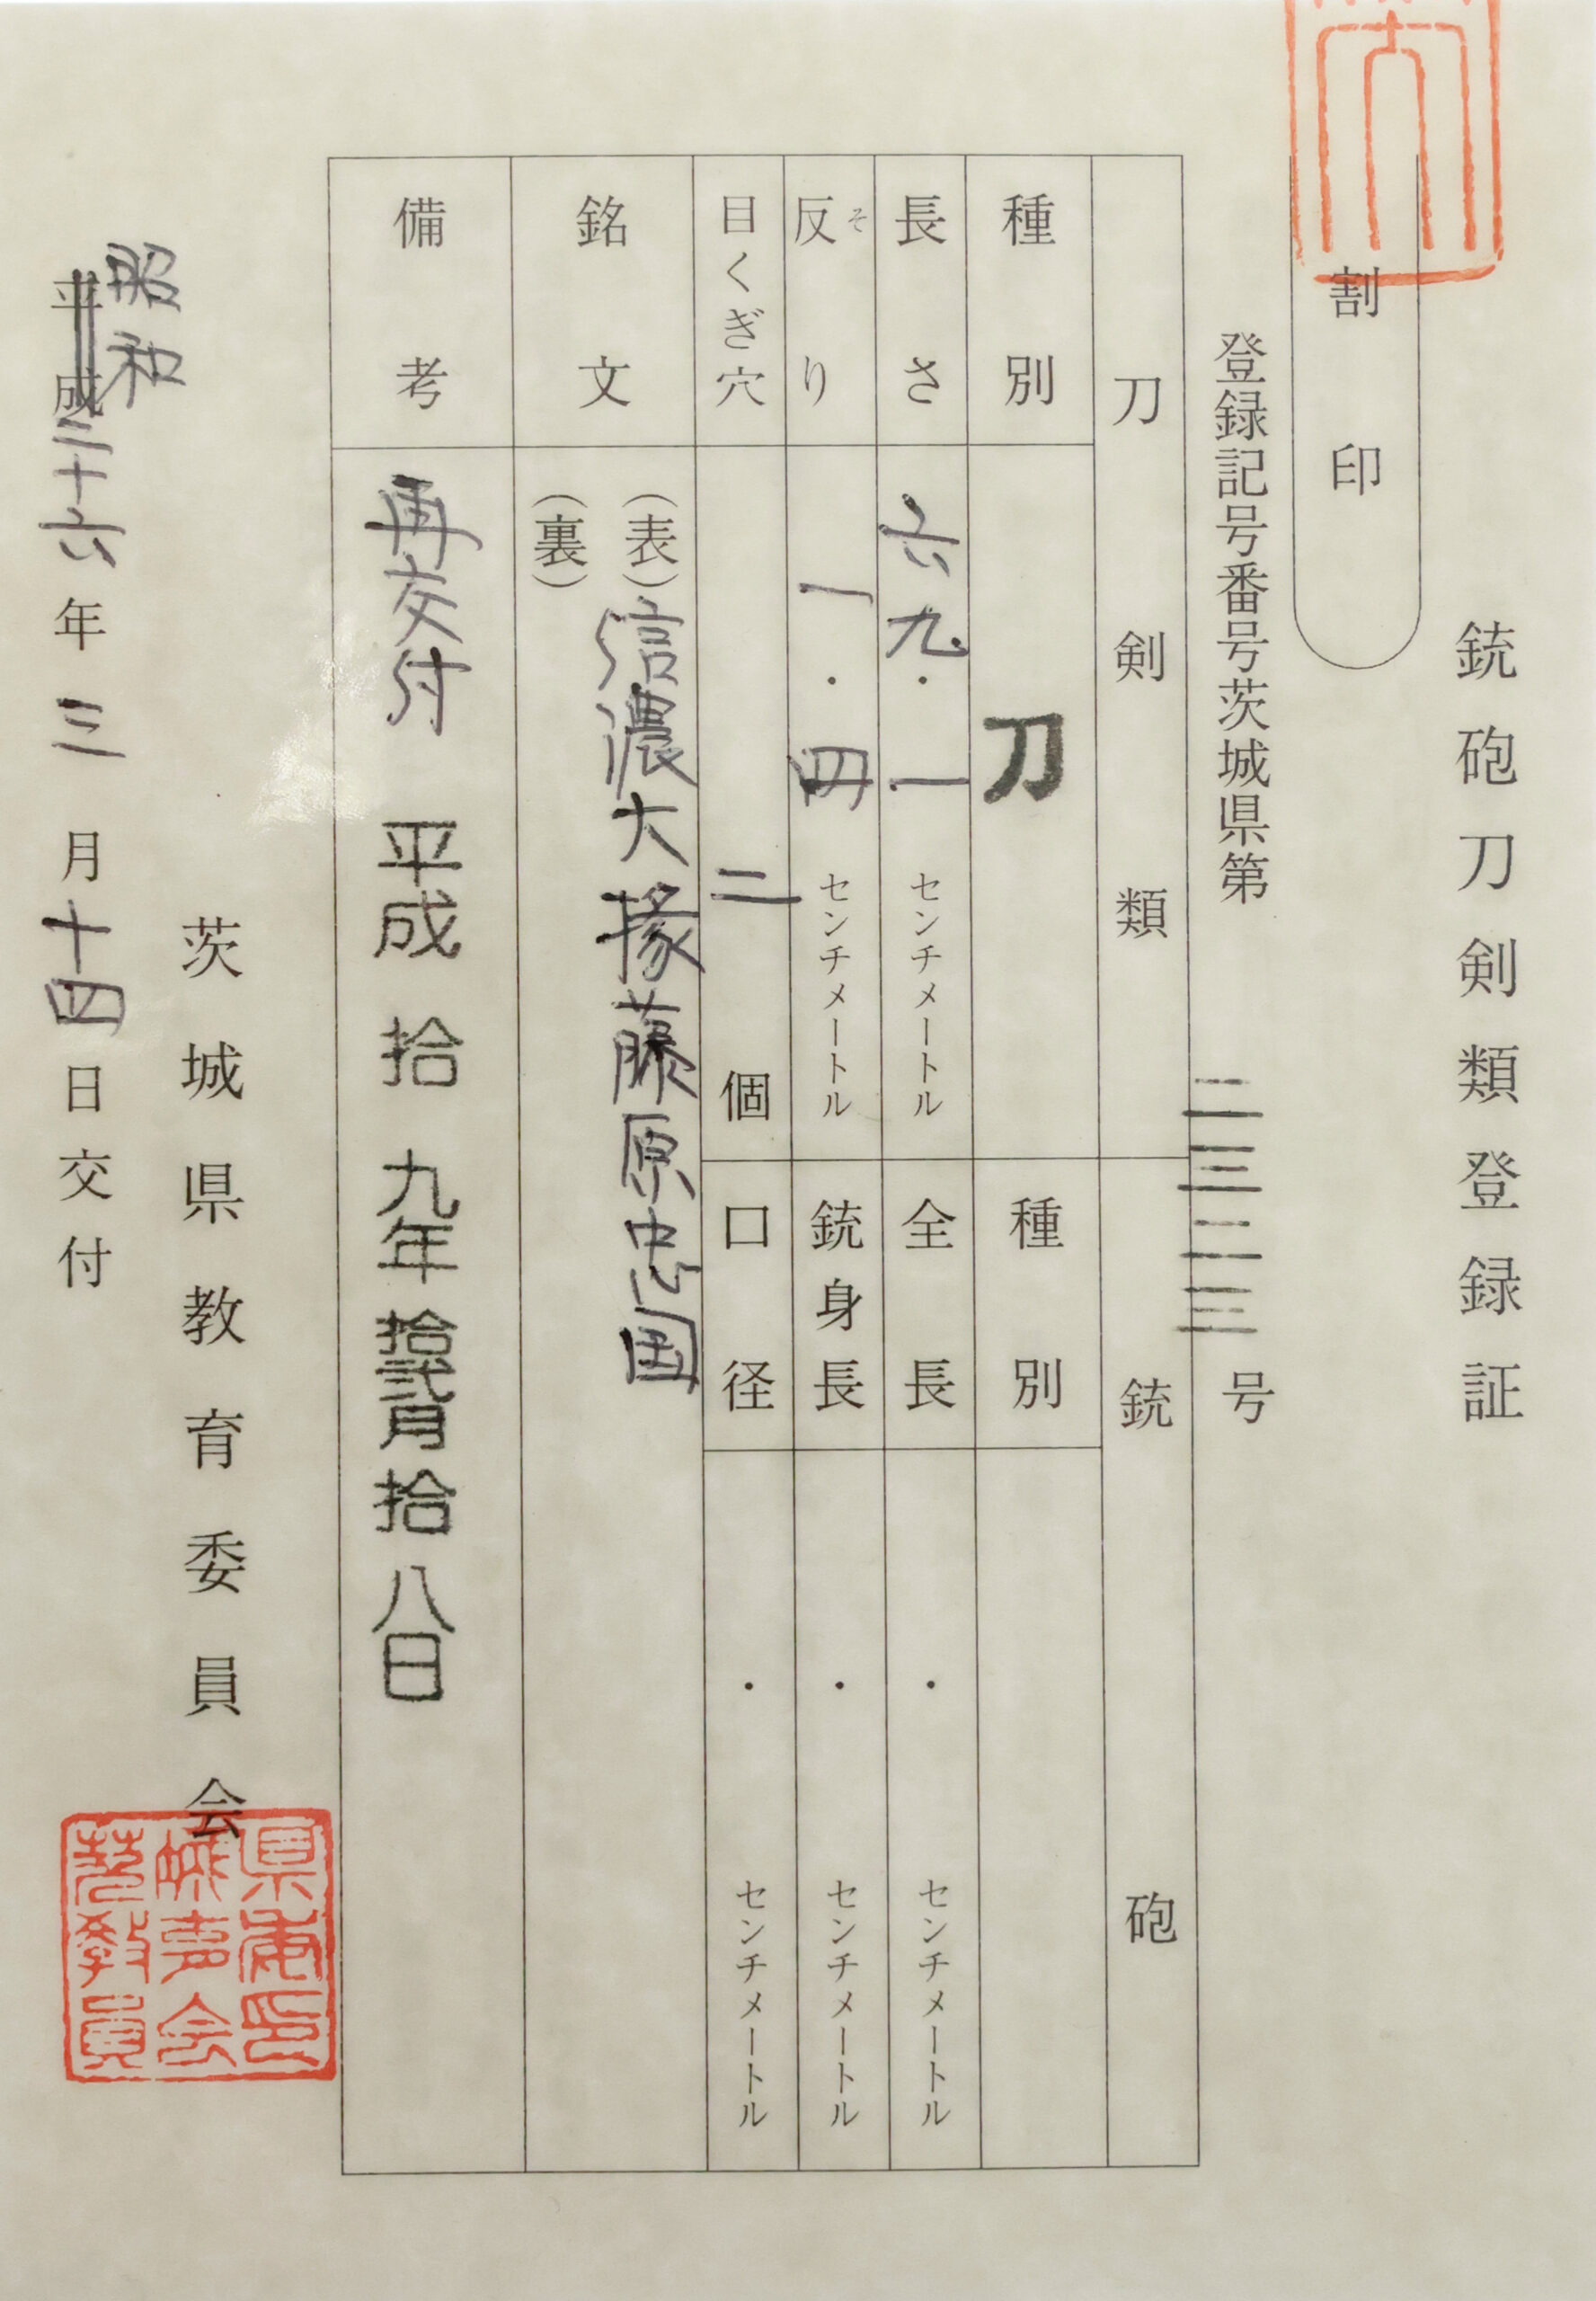 銃砲刀剣類登録証
割印
登録記号番号茨城県第二三二三号
刀剣類
銃砲
種別 刀
種別
長さ 六九・一センチメートル
全長 ・センチメートル
反り そ 一・四センチメートル
銃身長 ・センチメートル
目くぎ穴 二個
口径 ・センチメートル
銘文 (表)信濃大掾藤原忠国
(裏)
備考 再交付 平成拾九年拾弐月拾八日
茨城県教育委員会
昭和
平成三十六年三月十四日交付
茨城県
教育委
員会印